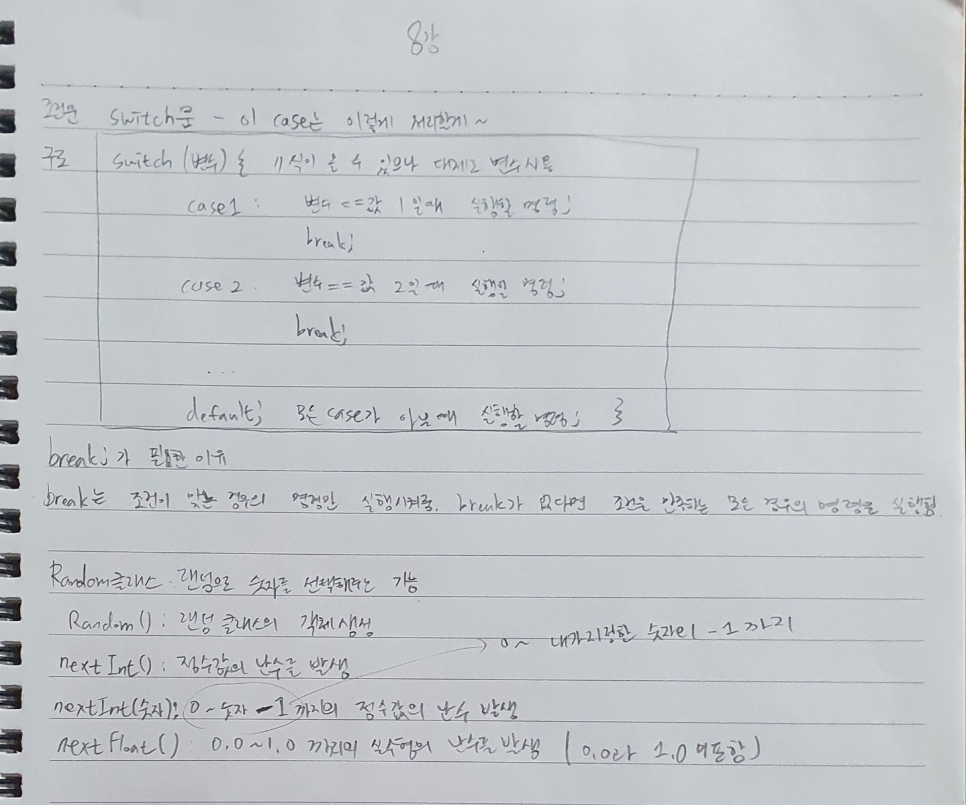 8강
조건문 switch문 - 이 case는 이렇게 처리할게~
구조 switch (변수) { //식이 올 수 있으나 대체로 변수사용
case1: 변수==값 1일때 실행할 명령;
break;
case 2: 변수==값 2일때 실행할 명령;
break;
...
default; 모든 case가 아닐때 실행할 명령; }
break;가 필요한 이유
break는 조건이 맞는 경우의 명령만 실행시켜줌. break가 없다면 조건을 만족하는 모든 경우의 명령을 실행됨
Random클래스: 랜덤으로 숫자를 선택해주는 기능
Random(): 랜덤 클래스의 객체생성
→ 0~ 내가지정한 숫자의 -1까지
nextInt(): 정수값의 난수를 발생
nextInt(숫자): 0~숫자-1까지의 정수값의 난수 발생
nextFloat(): 0.0~1.0 까지의 실수형의 난수를 발생 (0.0과 1.0 미포함)